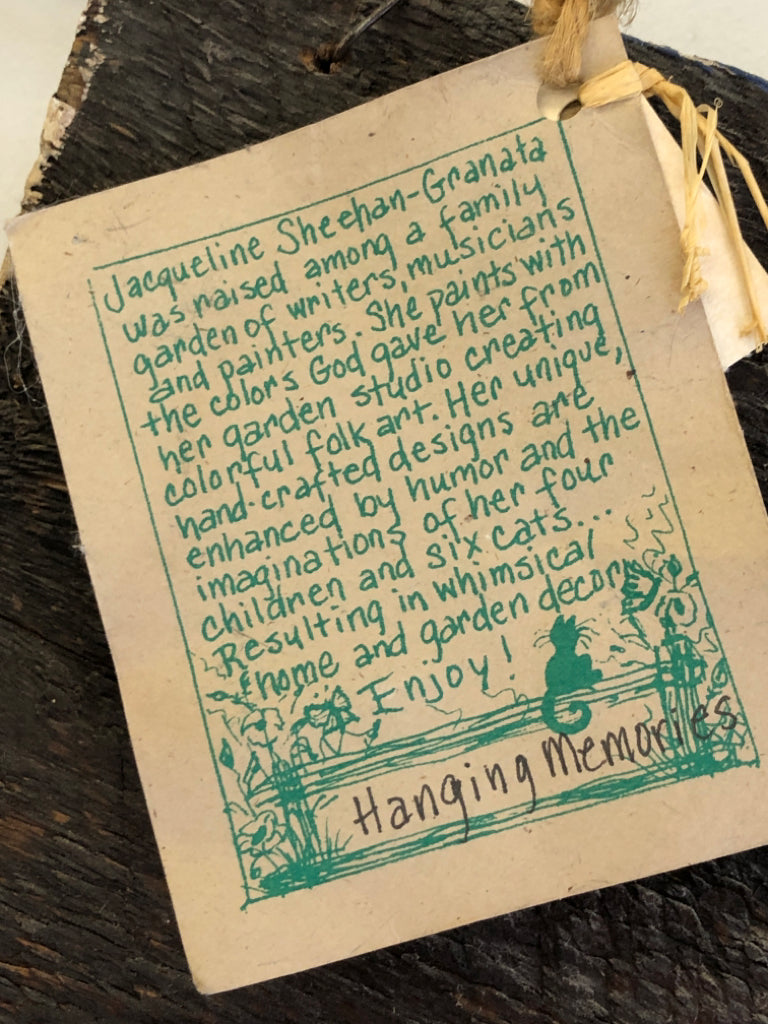 Jacqueline Sheehan-Granata
was raised among a family
garden of writers, musicians
and painters. She paints with
the colors God gave her from
her garden studio creating
colorful folk art. Her unique,
hand-crafted designs are
enhanced by humor and the
imaginations of her four
children and six cats...
Resulting in whimsical
home and garden decor.
Enjoy!
Hanging Memories